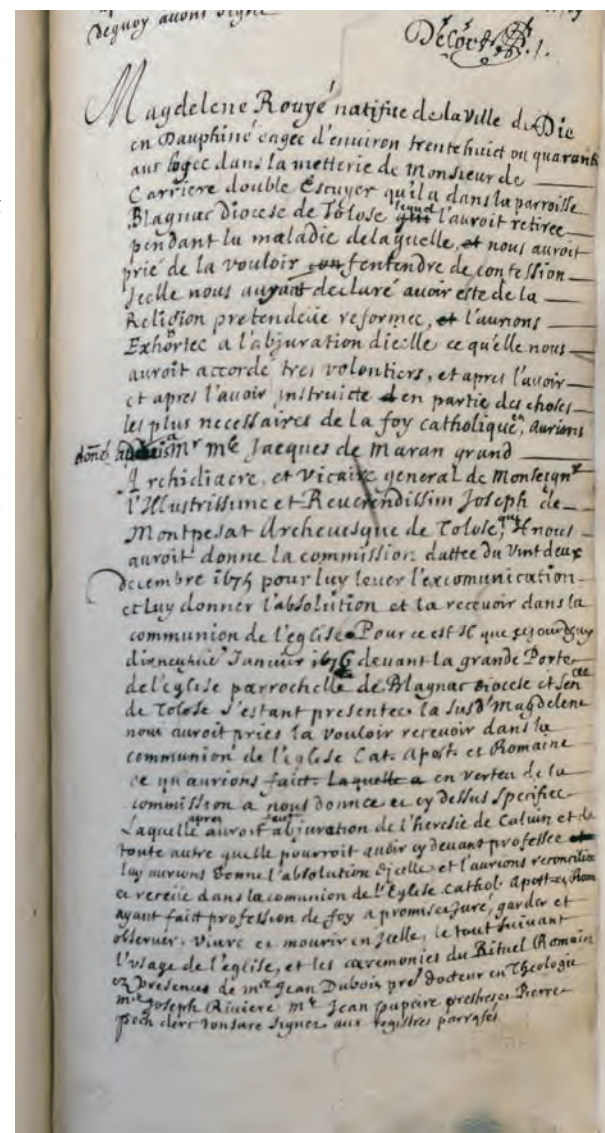 dequoy avons signé
Decors
Magdelene Rouyé natifue de la Ville de Die
en Dauphiné eagee d'enuiron trente huict ou quarante
ans logee dans la metterie de Monsieur de
Carriere double Escuyer qu'il a dans la parroisse
Blagnac Diocese de Tolose lequel l'auroit retiree
pendant la maladie de laquelle, et nous auroit
prié de la vouloir con fentendre de confession
Jcelle nous ayant declaré auoir este de la
Religion pretendeüe reformee, et l'aurions
Exhortee a l'abjuration dicelle ce qu'elle nous
auroit accordé tres volontiers, et apres l'auoir
et apres l'auoir jnstruicte d en partie des choses
les plus necessaires de la foy catholique, en aurions
donné aduis a Mr Me Jacques de Maran grand
Archidiacre, et Vicaire general de Monseignr
l'Illustrissime et Reuerendissim Joseph de
Montpesat Archeuesque de Tolose, qui nous
auroit donne la commission dattee du vint deux
decembre 1675 pour luy leuer l'excomunication
et luy donner l'absolution et la receuoir dans la
communion de l'eglise Pour ce est Il que cejourdhuy
dixneufuie Januier 1676 deuant la grande Porte
de l'eglise parrochelle de Blagnac Diocese et Sencée
de Tolose s'estant presentee la susd' Magdelene
nous auroit priés la vouloir receuoir dans la
communion de l'eglise Cat. Apost. et Romaine
ce qu'aurions faict. Laquelle a en verteu de la
commission a nous donnee et cy dessus specifiee
Laquelle apres auroit faict abjuration de l'heresie de Caluin et de
toute autre quelle pourroit auoir cy deuant professee et
luy aurions donné l'absolution djcelle et l'aurions reconciliee
et receüe dans la comunion de l'Eglise Cathol. Apost. et Rom
ayant faict profession de foy a promis et juré, garder et
obseruer, viure et mourir en Jcelle, le tout suiuant
l'vsage de l'eglise, et les ceremonies du Rituel Romain
ez presences de mre Jean Dubois pre docteur en Theologie
mre Joseph Riuiere me Jean prestres et Pierre
Pech clerc tonsuré signez aux registres parrafés